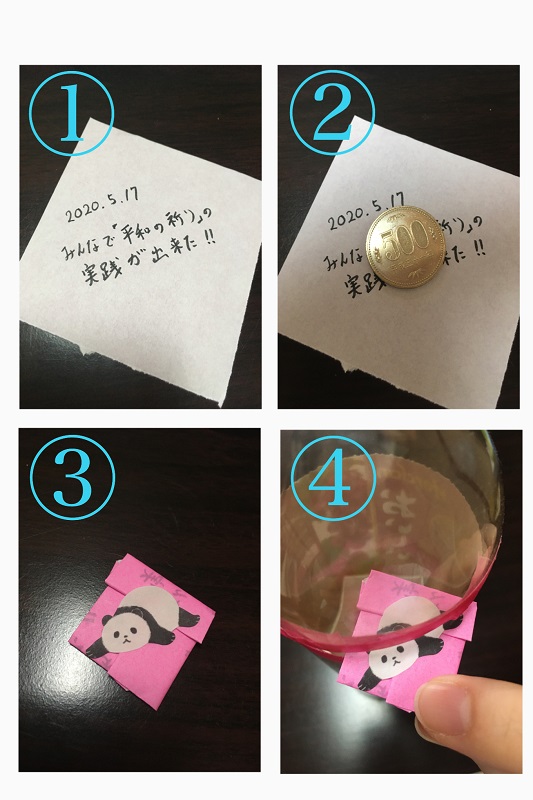 1
2020.5.17
みんなで「平和の祈り」の
実践が出来た!!
2
2020.5.17
みんな
祈り」の
500
実践
来た!!
3
4